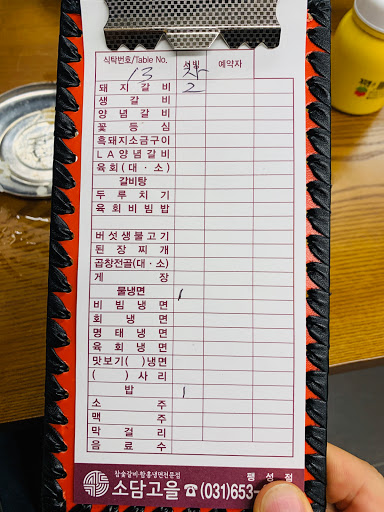 식탁번호/Table No. 석별 예약자
13
돼지갈비 2
생갈비
양념갈비
꽃등심
흑돼지소금구이
LA양념갈비
육회(대·소)
갈비탕
두루치기
육회비빔밥
버섯생불고기
된장찌개
곱창전골(대·소)
게장
물냉면 1
비빔냉면
회냉면
명태냉면
육회냉면
맛보기( )냉면
( )사리
밥 1
소주
맥주
막걸리
음료수
참숯갈비·함흥냉면전문점 평성점
소담고을 ☎(031)653-